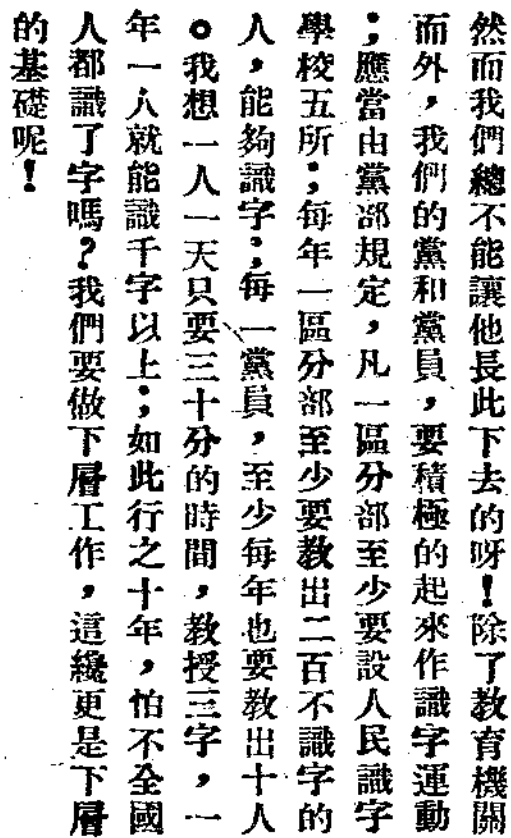 然而我們總不能讓他長此下去的呀！除了教育機關
而外，我們的黨和黨員，要積極的起來作識字運動
；應當由黨部規定，凡一區分部至少要設人民識字
學校五所；每年一區分部至少要教出二百不識字的
人，能夠識字；每一黨員，至少每年也要教出十人
。我想一人一天只要三十分的時間，教授三字，一
年一人就能識千字以上；如此行之十年，怕不全國
人都識了字嗎？我們要做下層工作，這纔更是下層
的基礎呢！